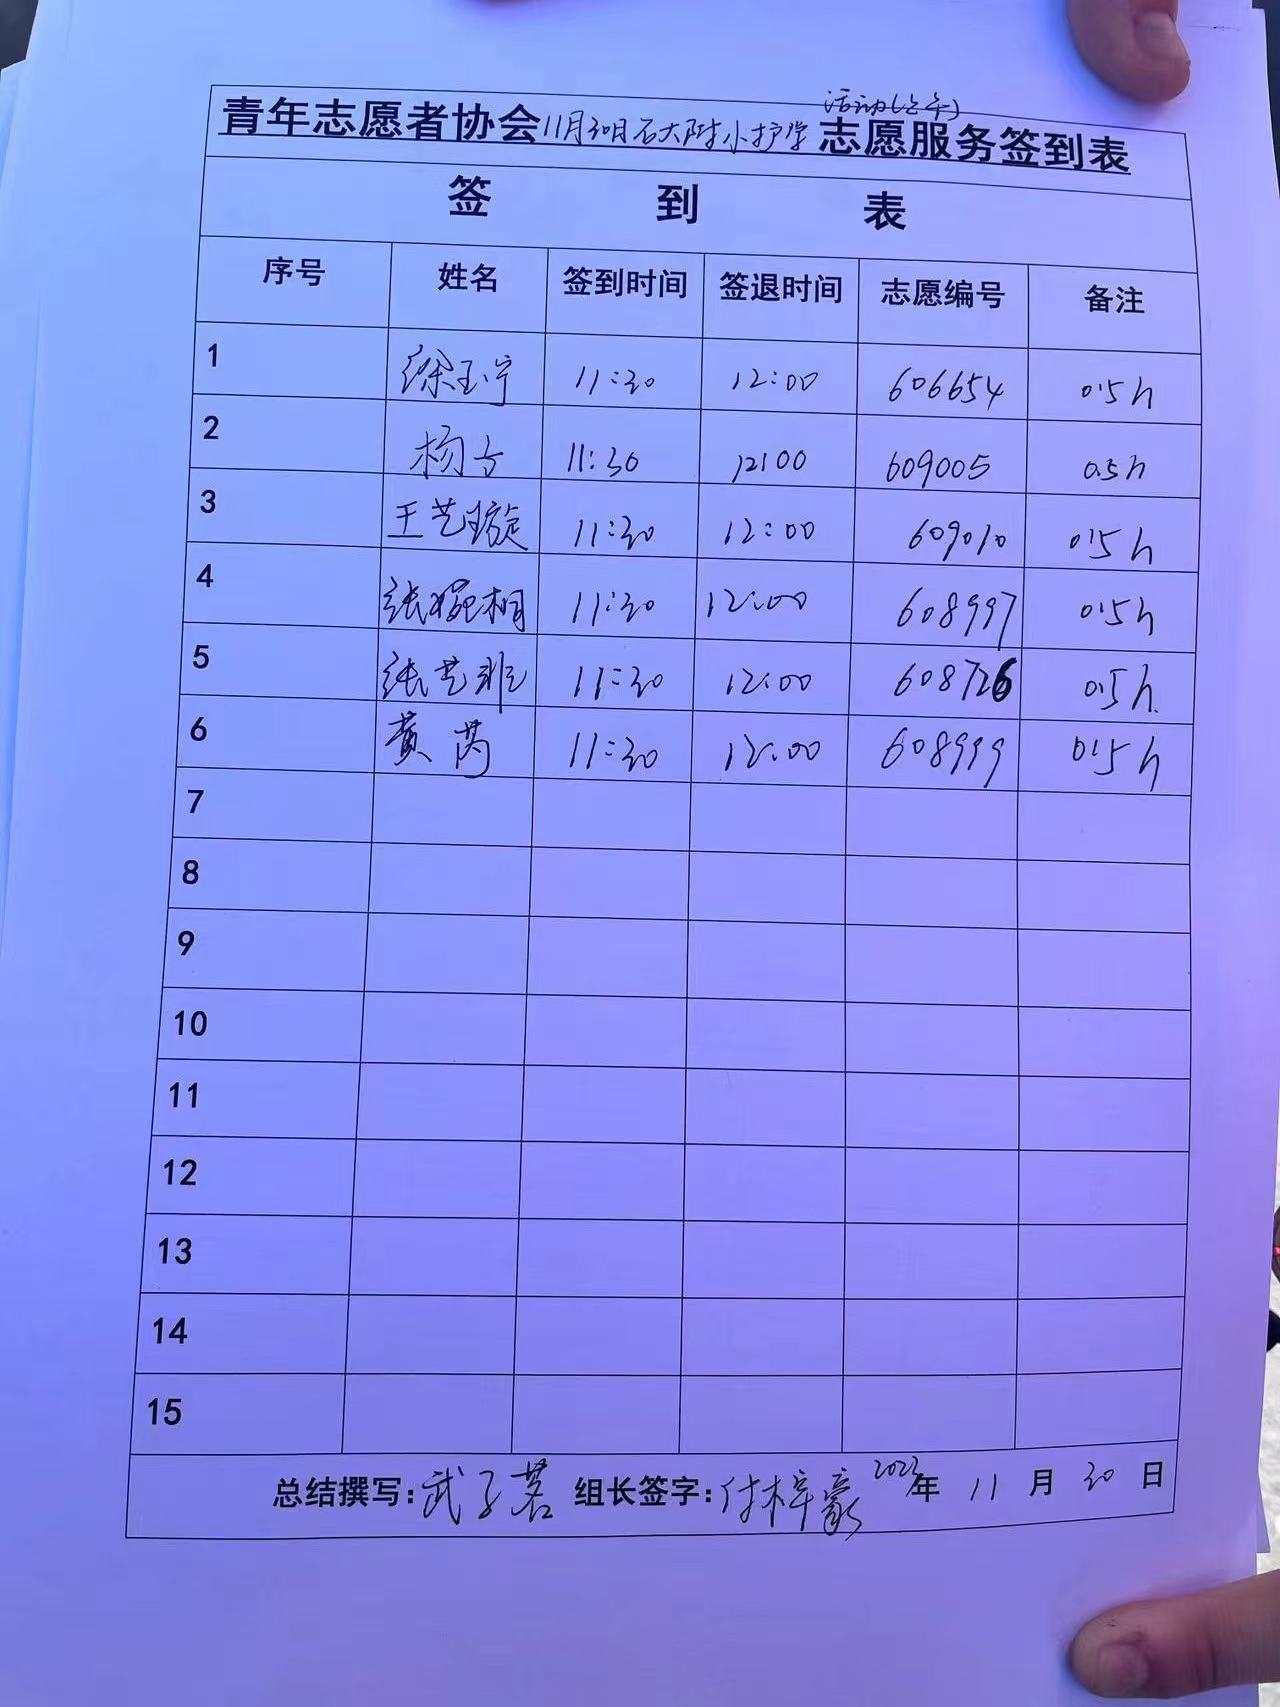 活动(公车)
青年志愿者协会11月30日石大附小护学志愿服务签到表
签 到 表
序号 姓名 签到时间 签退时间 志愿编号 备注
1 徐玉宁 11:30 12:00 606654 0.5h
2 杨方 11:30 12:00 609005 0.5h
3 王艺璇 11:30 12:00 609010 0.5h
4 张婉桐 11:30 12:00 608997 0.5h
5 张艺非 11:30 12:00 608726 0.5h.
6 黄芮 11:30 12:00 608999 0.5h
7
8
9
10
11
12
13
14
15
总结撰写:武子茗 组长签字:付梓豪 2023年 11 月 30 日